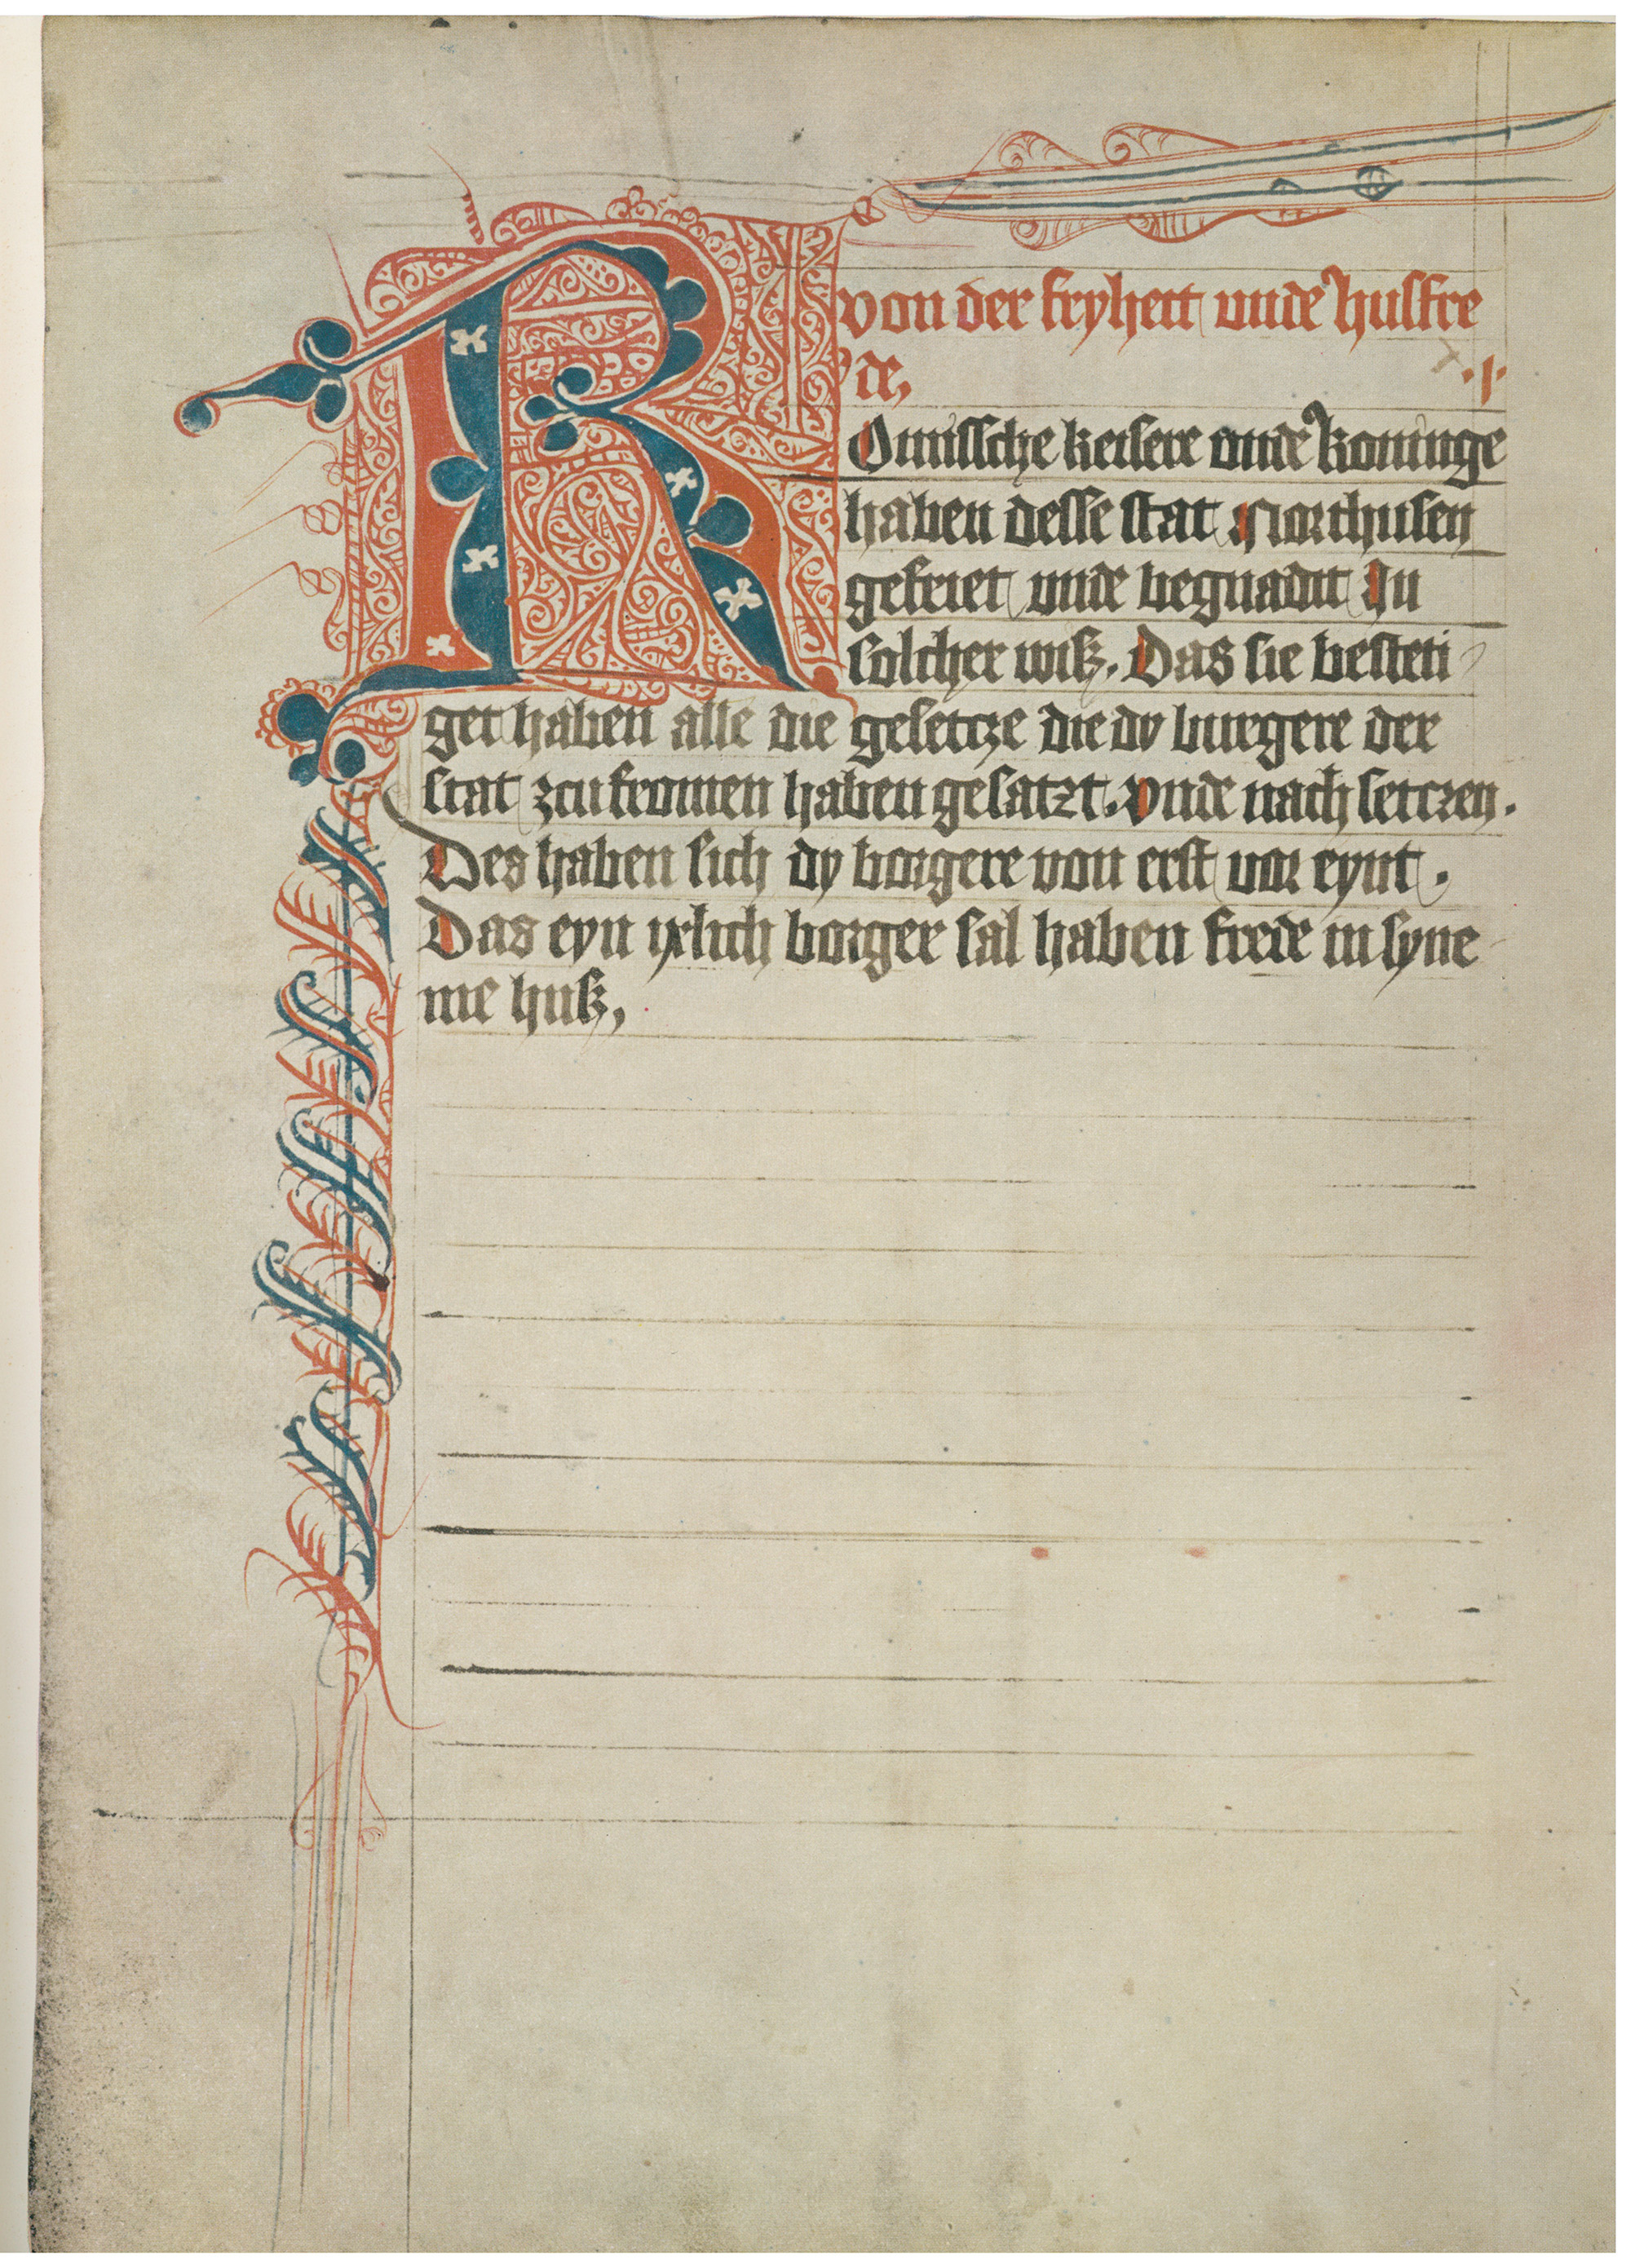 von der fryheit unde husfre
de, .I.
ROmissche keisere vnde koninge
haben desse stat Northusen
gefriet unde begnadit In
solcher wisz. Das sie besteti
get haben alle die gesetcze die dy burgere der
stat zcu fromen haben gesatzt. vnde nach setczen.
Des haben sich dy borgere von erst vor eynt.
Das eyn ixlich borger sal haben frede in syne
me husz,